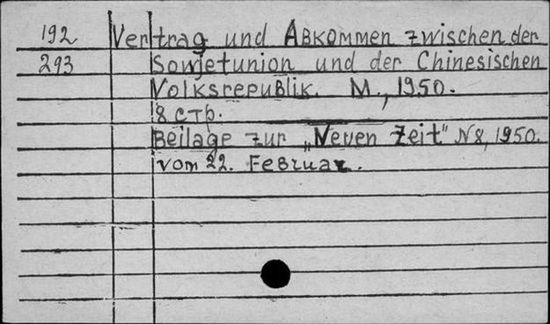 192 Vertrag und Abkommen zwischen der
293 Sowjetunion und der Chinesischen
Volksrepublik. M., 1950.
8 стр.
Beilage zur „Neuen Zeit" N8, 1950.
vom 22. Februar.